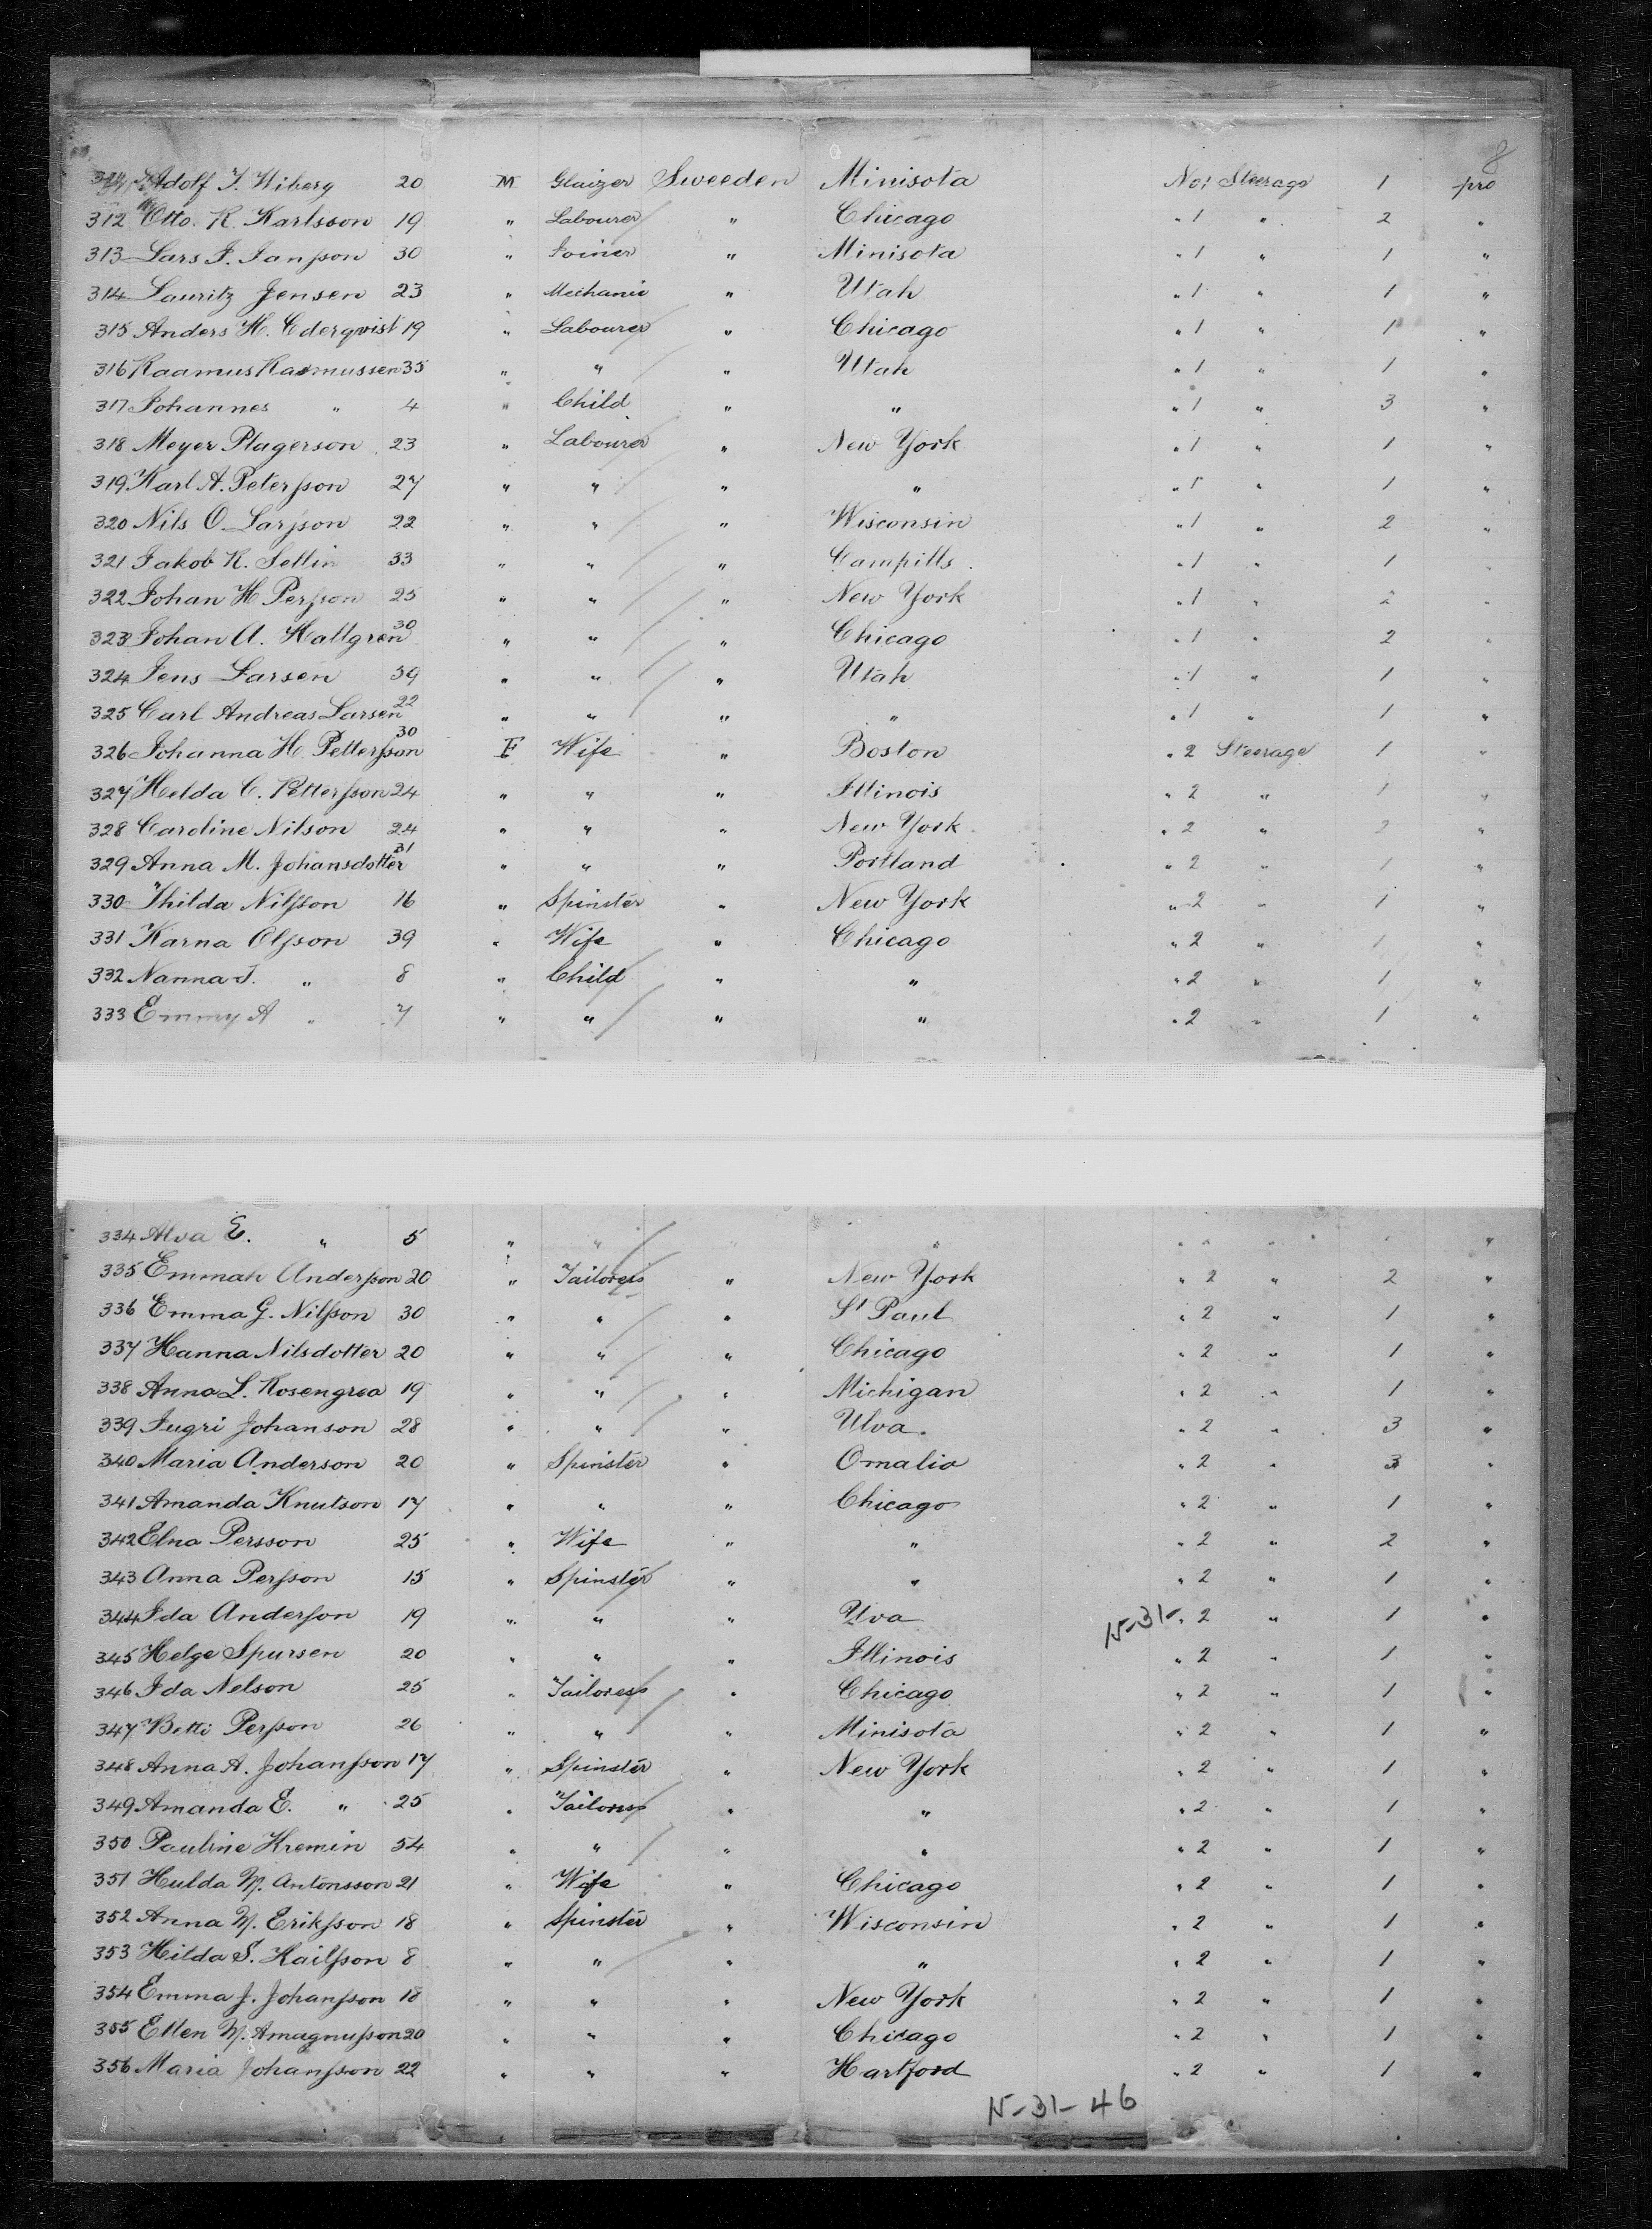 8
311 Adolf T. Wiberg 20 M Glaizer Sweeden Minisota No 1 Steerage 1 pro
312 Otto. R. Karlsson 19 " Labourer " Chicago " 1 " 2 "
313 Lars J. Jansson 30 " Joiner " Minisota " 1 " 1 "
314 Lauritz Jensen 23 " Mechanic " Utah " 1 " 1 "
315 Anders H. Cderqvist 19 " Labourer " Chicago " 1 " 1 "
316 Raamus Rasmussen 35 " " " Utah " 1 " 1 "
317 Johannes " 4 " Child " " " 1 " 3 "
318 Meyer Plagerson 23 " Labourer " New York " 1 " 1 "
319 Karl A. Petersson 27 " " " " " 1 " 1 "
320 Nils O. Larsson 22 " " " Wisconsin " 1 " 2 "
321 Jakob R. Sellin 33 " " " Campills " 1 " 1 "
322 Johan H Persson 25 " " " New York " 1 " 2 "
323 Johan A. Hallgren 30 " " " Chicago " 1 " 2 "
324 Jens Larsen 59 " " " Utah " 1 " 1 "
325 Carl Andreas Larsen 22 " " " " " 1 " 1 "
326 Johanna H. Pettersson 30 F Wife " Boston " 2 Steerage 1 "
327 Helda C. Pettersson 24 " " " Illinois " 2 " 1 "
328 Caroline Nilson 24 " " " New York " 2 " 2 "
329 Anna M. Johansdotter 31 " " " Portland " 2 " 1 "
330 Thilda Nilsson 16 " Spinster " New York " 2 " 1 "
331 Karna Olsson 39 " Wife " Chicago " 2 " 1 "
332 Nanna J. " 8 " Child " " " 2 " 1 "
333 Emmy A " 7 " " " " " 2 " 1 "
334 Alva E. " 5 " " " " " " " " "
335 Emmah Andersson 20 " Tailoress " New York " 2 " 2 "
336 Emma G. Nilsson 30 " " " St Paul " 2 " 1 "
337 Hanna Nilsdotter 20 " " " Chicago " 2 " 1 "
338 Anna L. Rosengrea 19 " " " Michigan " 2 " 1 "
339 Jugri Johanson 28 " " " Ulva. " 2 " 3 "
340 Maria Anderson 20 " Spinster " Omalia " 2 " 3 "
341 Amanda Knutson 17 " " " Chicago " 2 " 1 "
342 Elna Persson 25 " Wife " " " 2 " 2 "
343 Anna Persson 15 " Spinster " " " 2 " 1 "
344 Ida Anderson 19 " " " Yva N-31- " 2 " 1 "
345 Helge Spursen 20 " " " Illinois " 2 " 1 "
346 Ida Nelson 25 " Tailoress " Chicago " 2 " 1 "
347 Betti Persson 26 " " " Minisota " 2 " 1 "
348 Anna A. Johansson 17 " Spinster " New York " 2 " 1 "
349 Amanda E. " 25 " Tailoress " " " 2 " 1 "
350 Pauline Hremin 54 " " " " " 2 " 1 "
351 Hulda M. Antonsson 21 " Wife " Chicago " 2 " 1 "
352 Anna M. Eriksson 18 " Spinster " Wisconsin " 2 " 1 "
353 Hilda S. Kailsson 8 " " " " " 2 " 1 "
354 Emma J. Johansson 18 " " " New York " 2 " 1 "
355 Ellen M. Amagnusson 20 " " " Chicago " 2 " 1 "
356 Maria Johansson 22 " " " Hartford " 2 " 1 "
N-31-46